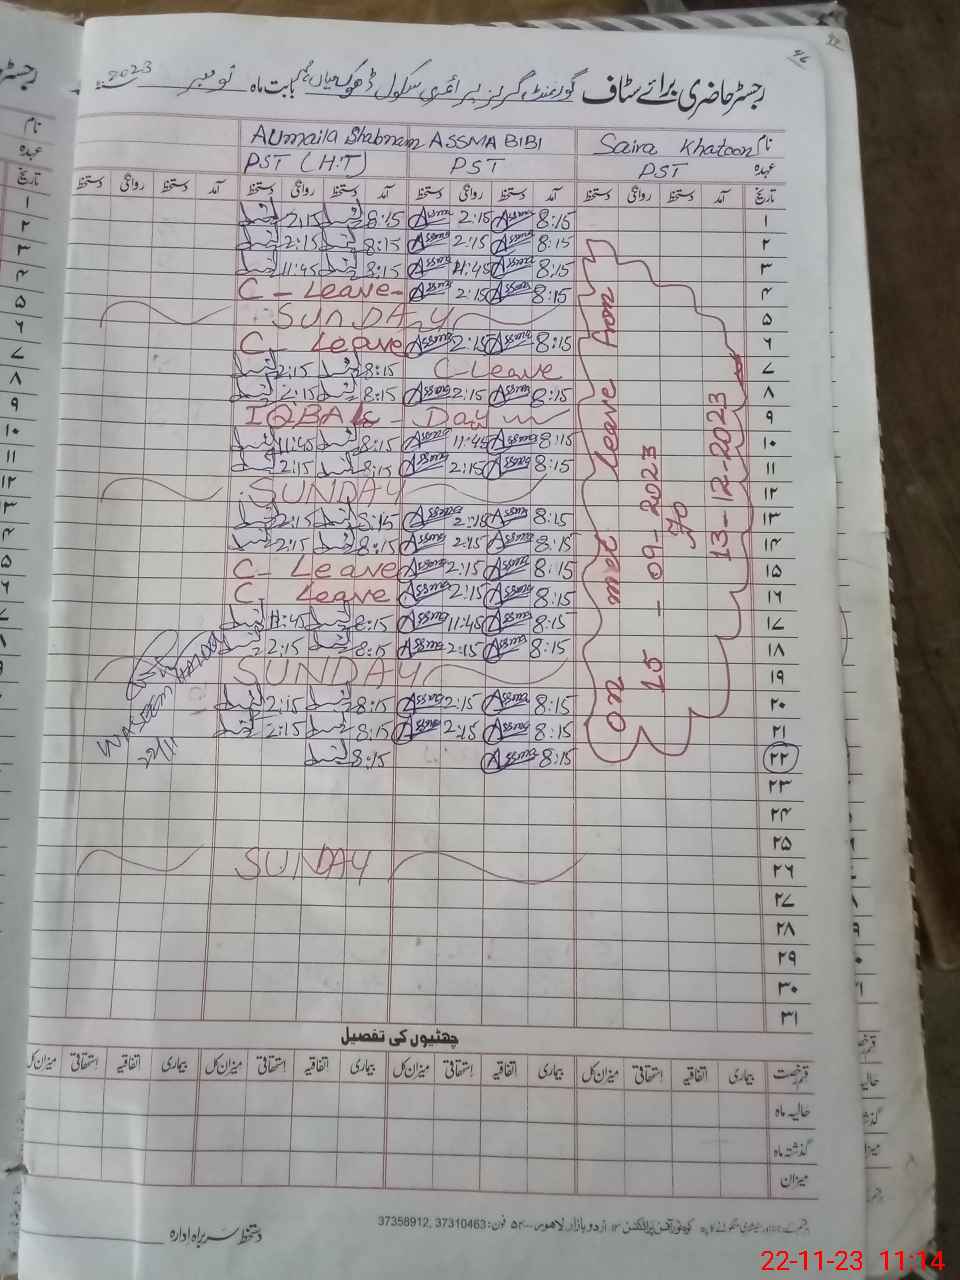 رجسٹر حاضری برائے سٹاف گورنمنٹ گرلز پرائمری سکول ڈھوک میاں بابت ماہ نومبر 2023
نام Saira Khatoon ASSMA BIBI AUmaila Shabnam
عہدہ PST PST PST (H.T)
تاریخ آمد دستخط روانگی دستخط آمد دستخط روانگی دستخط آمد دستخط روانگی دستخط آمد دستخط روانگی دستخط
۱ 8:15 Assma 2:15 Assma 8:15 2:15
۲ 8:15 Assma 2:15 Assma 8:15 2:15
۳ 8:15 Assma 11:45 Assma 8:15 11:45
۴ 8:15 Assma 2:15 Assma C - Leave-
۵ SUNDAY
۶ 8:15 Assma 2:15 Assma C - Leave
۷ C-Leave 8:15 2:15
۸ 8:15 Assma 2:15 Assma 8:15 2:15
۹ IQBAL - Day
۱۰ 8:15 Assma 11:45 Assma 8:15 11:45
۱۱ 8:15 Assma 2:15 Assma 8:15 2:15
۱۲ SUNDAY
۱۳ 8:15 Assma 2:15 Assma 8:15 2:15
۱۴ 8:15 Assma 2:15 Assma 8:15 2:15
۱۵ 8:15 Assma 2:15 Assma C - Leave
۱۶ 8:15 Assma 2:15 Assma C - Leave
۱۷ 8:15 Assma 11:45 Assma 8:15 11:45
۱۸ 8:15 Assma 2:15 Assma 8:15 2:15
۱۹ SUNDAY
۲۰ 8:15 Assma 2:15 Assma 8:15 2:15
۲۱ 8:15 Assma 2:15 Assma 8:15 2:15
۲۲ 8:15 Assma 8:15
۲۳
۲۴
۲۵
۲۶ SUNDAY
۲۷
۲۸
۲۹
۳۰
۳۱
on met leave from
15 - 09-2023
To
13-12-2023
WASEEM HAIDER
22/11
چھٹیوں کی تفصیل
قسم رخصت بیماری اتفاقیہ استحقاقی میزان کل بیماری اتفاقیہ استحقاقی میزان کل بیماری اتفاقیہ استحقاقی میزان کل بیماری اتفاقیہ استحقاقی میزان کل
حالیہ ماہ
گذشتہ ماہ
میزان
اردو بازار لاہور فون: 37310463, 37358912
دستخط سربراہ ادارہ
22-11-23 11:14